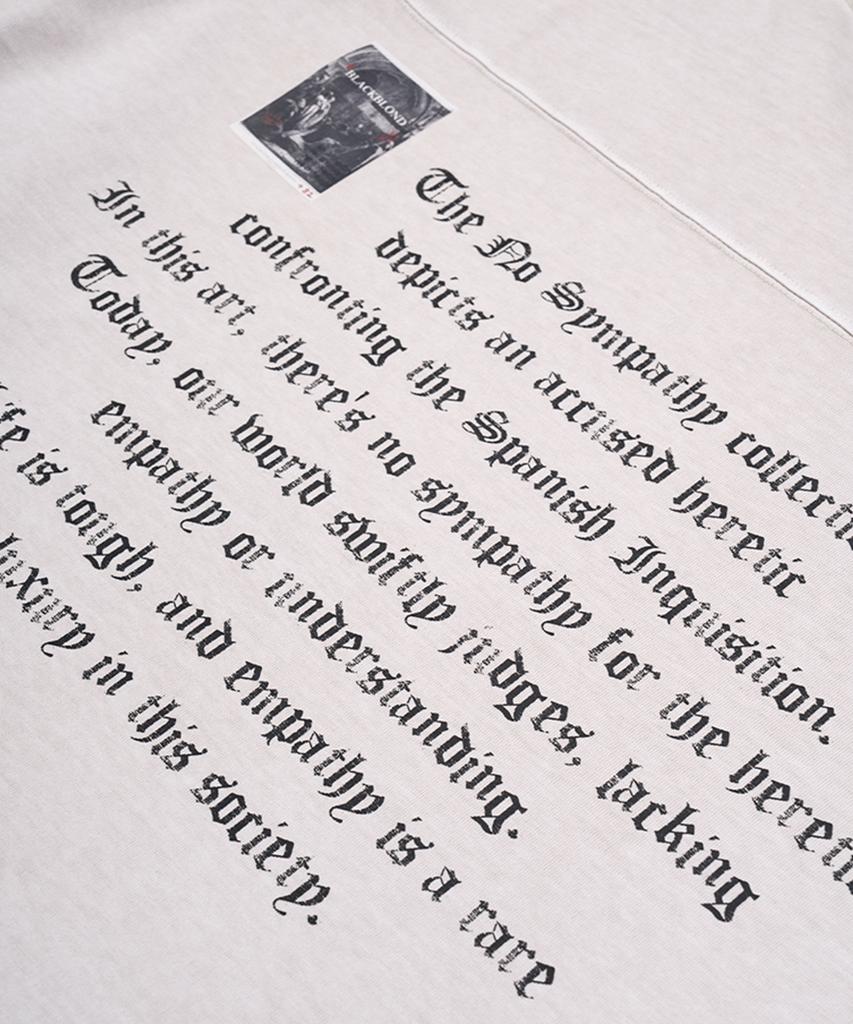 BLACKBLOND
The No Sympathy collecti
depicts an accused heretic
confronting the Spanish Inquisition.
In this art, there's no sympathy for the hereti
Today, our world swiftly judges, lacking
empathy or understanding.
fe is tough, and empathy is a rare
luxury in this society.